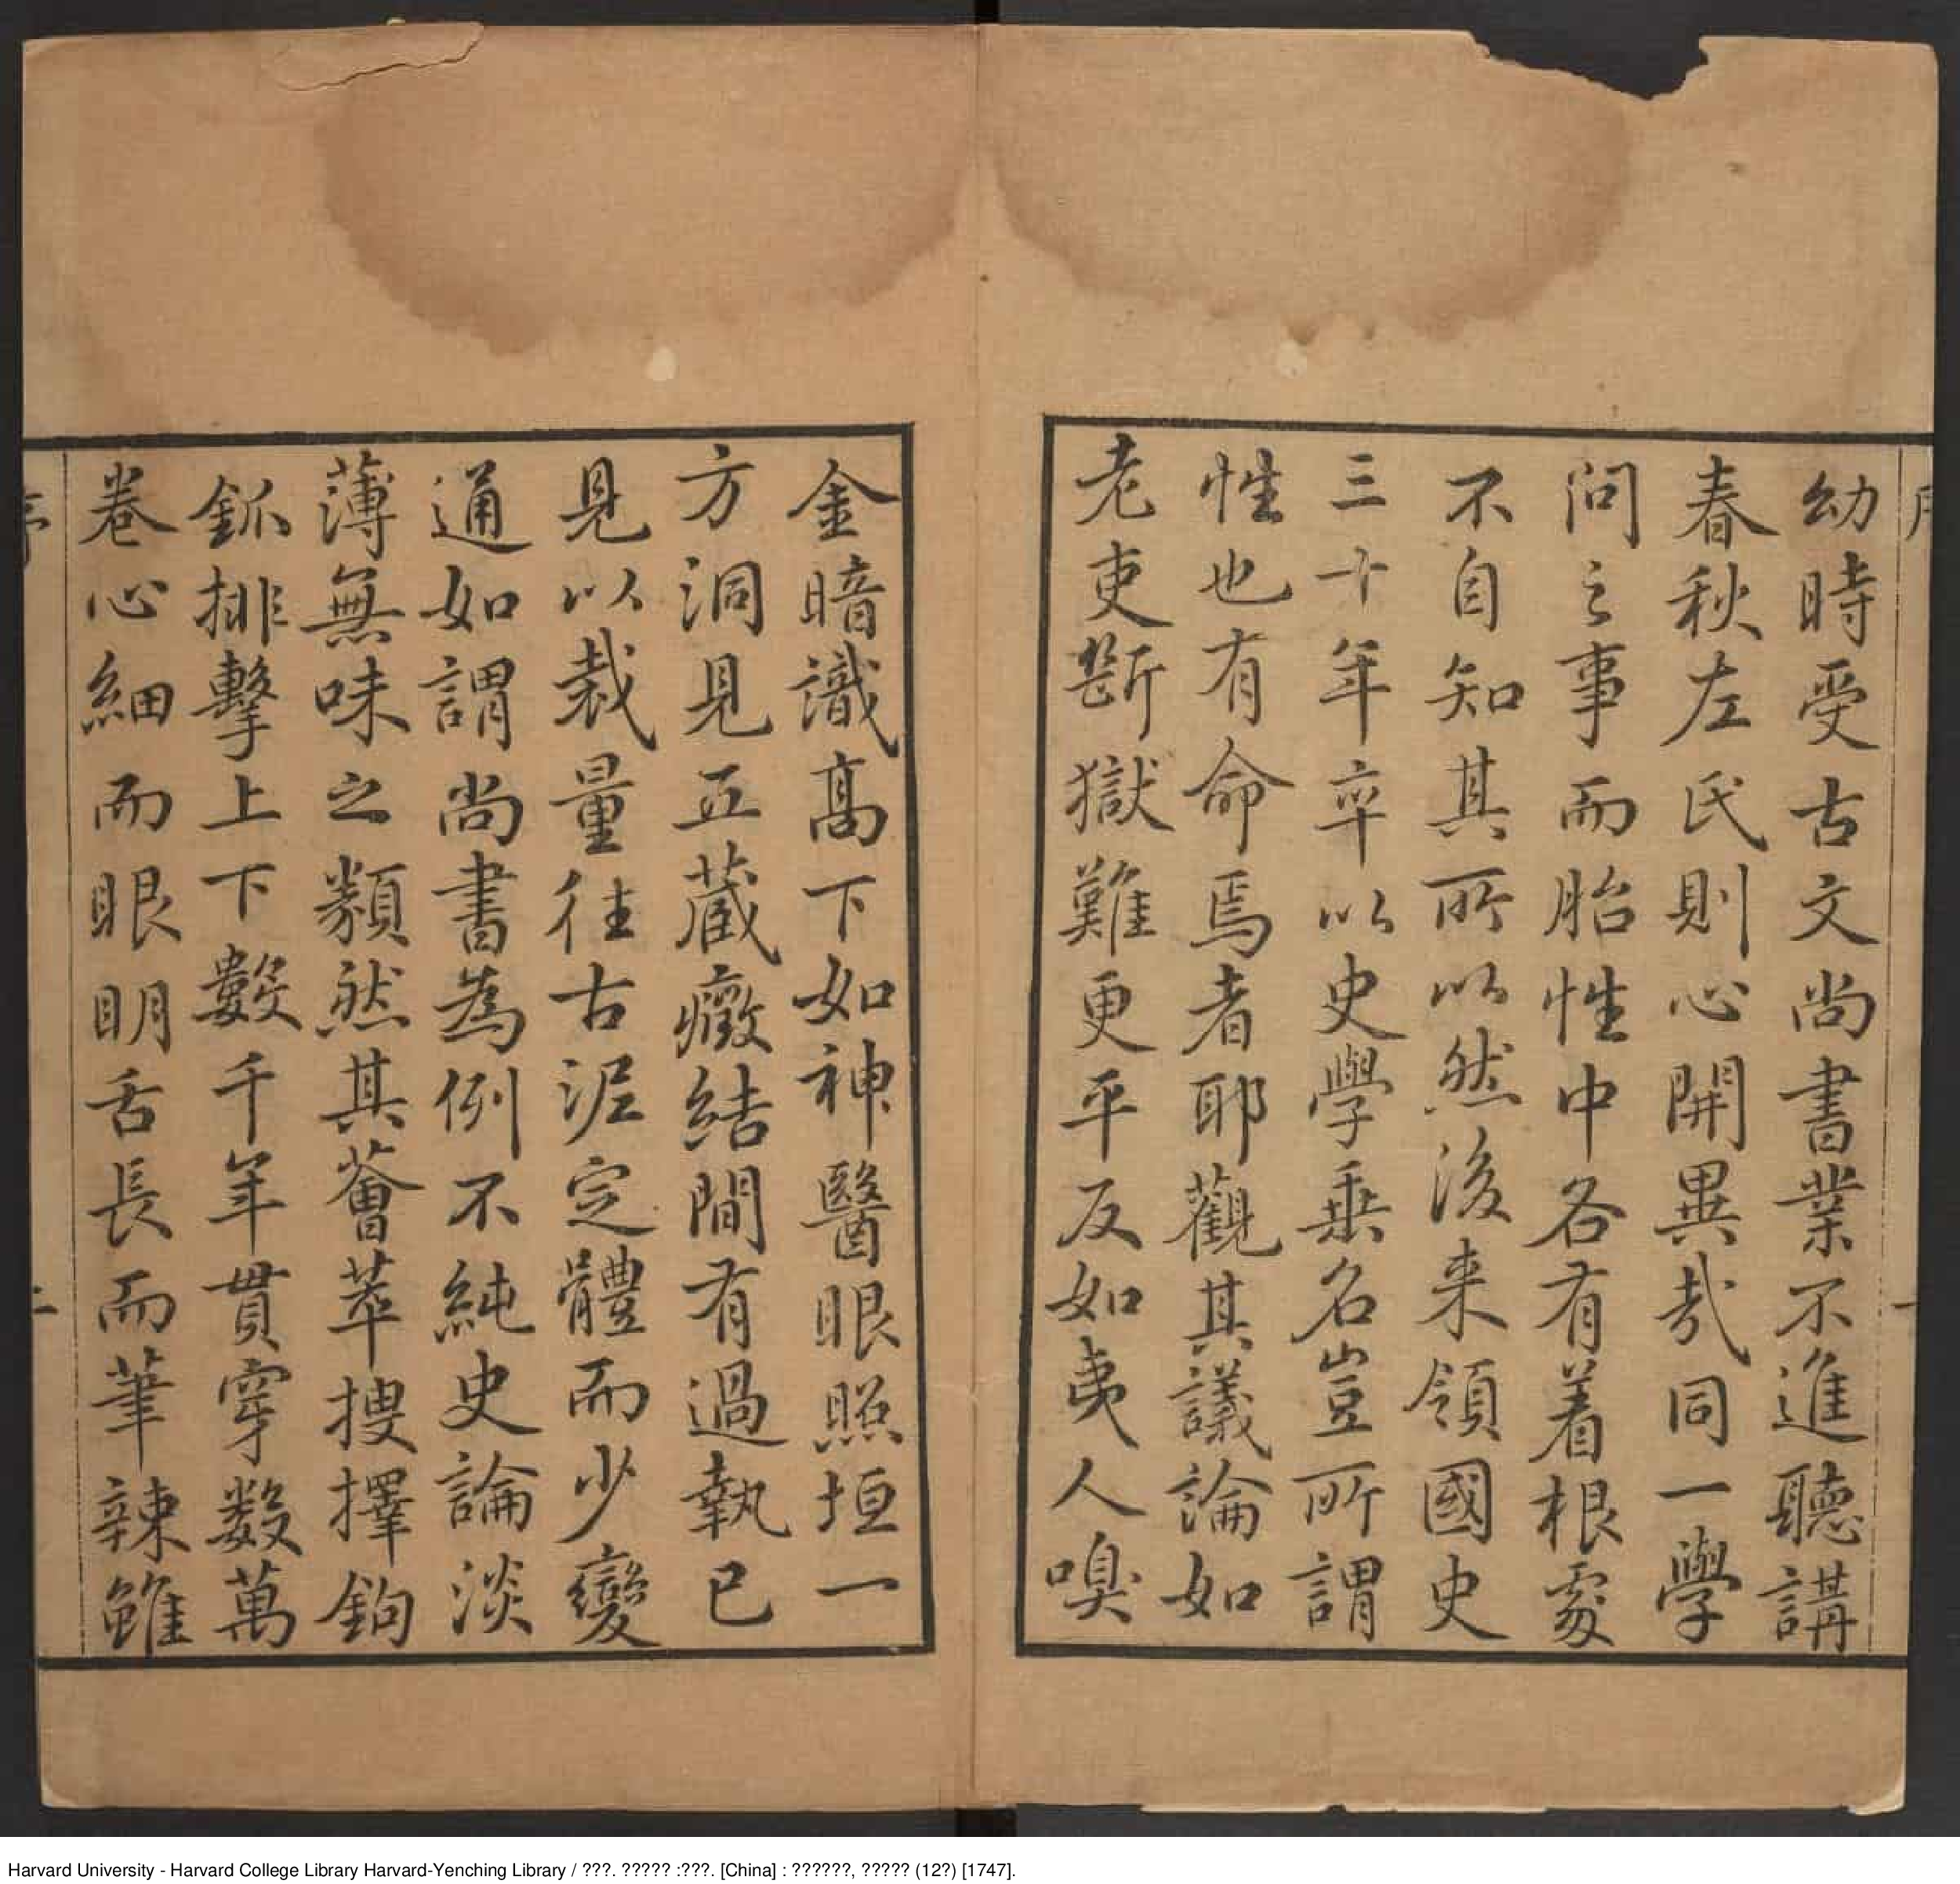 幼時受古文尚書業不進聽講
春秋左氏則心開異哉同一學
問之事而胎性中各有着根處
不自知其所以然後来領國史
三十年卒以史學乗名豈所謂
性也有命焉者耶觀其議論如
老吏斷獄難更平反如夷人嗅
金暗識髙下如神醫眼照垣一
方洞見五藏癥結間有過執已
見以裁量往古泥定體而少變
通如謂尚書為例不純史論淡
薄無味之類然其薈萃搜擇鉤
釽排擊上下數千年貫穿数萬
卷心細而眼明舌長而筆辣雖
序
一
序
二
Harvard University - Harvard College Library Harvard-Yenching Library / ???. ????? :???. [China] : ??????, ????? (12?) [1747].